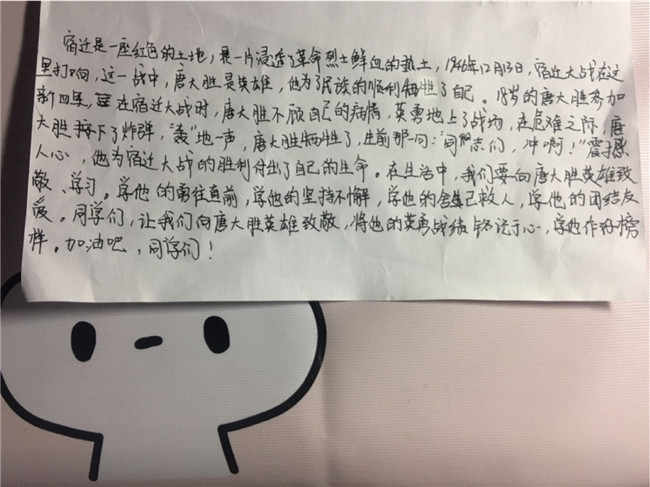 宿迁是一座红色的土地，是一片浸透了革命烈士鲜血的热土，1946年12月13日，宿迁大战在这
里打响，这一战中，唐大胜是英雄，他为了民族的顺利牺牲了自己。18岁的唐大胜参加
新四军，在宿迁大战时，唐大胜不顾自己的病情，英勇地上了战场，在危难之际，唐
大胜按下了炸弹，"轰"地一声，唐大胜牺牲了，生前那一句："同志们，冲啊！"震撼
人心，他为宿迁大战的胜利付出了自己的生命。在生活中，我们要向唐大胜英雄致
敬、学习。学他的勇往直前，学他的坚持不懈，学他的舍己救人，学他的团结友
爱。同学们，让我们向唐大胜英雄致敬，将他的英勇战绩铭记于心，学他作好榜
样。加油吧，同学们！